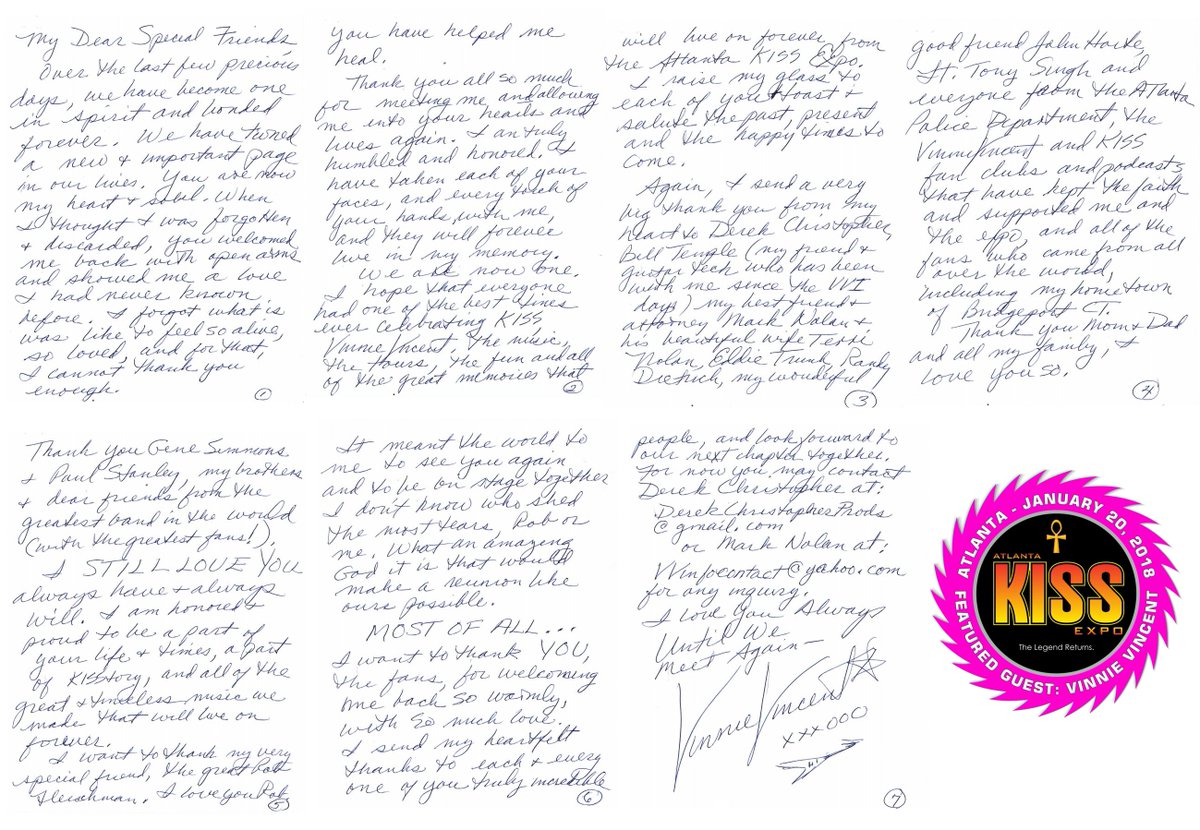 My Dear Special Friends,
Over the last few precious
days, we have become one
in spirit and bonded
forever. We have turned
a new & important page
in our lives. You are now
my heart & soul. When
I thought I was forgotten
& discarded, you welcomed
me back with open arms
and showed me a love
I had never known
before. I forgot what is
was like to feel so alive,
so loved, and for that,
I cannot thank you
enough.
1
you have helped me
heal.
Thank you all so much
for meeting me, and allowing
me into your hearts and
lives again. I am truly
humbled and honored. I
have taken each of your
faces, and every touch of
your hands, with me,
and they will forever
live in my memory.
We are now one.
I hope that everyone
had one of the best times
ever celebrating KISS
Vinnie Vincent, the music,
the tours, the fun and all
of the great memories that
2
will live on forever from
the Atlanta KISS Expo.
I raise my glass to
each of you & toast &
salute the past, present
and the happy times to
come.
Again, I send a very
big thank you from my
heart to Derek Christopher,
Bill Temple (my friend &
guitar tech who has been
with me since the VVI
days) my best friend &
attorney Mark Nolan &
his beautiful wife Terri
Nolan, Eddie Trunk, Randy
Dietrich, my wonderful
3
good friend John Harte,
Lt. Tony Singh and
everyone from the ATlanta
Police Department, the
Vinnie Vincent and KISS
fan clubs and podcasts
that have kept the faith
and supported me and
the expo, and all of the
fans who came from all
over the world,
including my hometown
of Bridgeport CT.
Thank you Mom & Dad
and all my family, I
love you so.
4
Thank you Gene Simmons
& Paul Stanley, my brothers
& dear friends from the
greatest band in the world
(with the greatest fans!).
I STILL LOVE YOU
always have & always
will. I am honored &
proud to be a part of
your life & times, a part
of KISStory, and all of the
great & timeless music we
made that will live on
forever.
I want to thank my very
special friend, the great Rob
Fleischman. I love you Rob.
5
It meant the world to
me to see you again
and to be on stage together
I don't know who shed
the most tears, Rob or
me. What an amazing
God it is that would
make a reunion like
ours possible.
MOST OF ALL...
I want to thank YOU,
the fans, for welcoming
me back so warmly,
with so much love.
I send my heartfelt
thanks to each & every
one of you truly incredible
6
people, and look forward to
our next chapter together.
For now you may contact
Derek Christopher at:
DerekChristopherProds
@gmail.com
or Mark Nolan at:
VVinfocontact@yahoo.com
for any inquiry.
I Love You Always
Until We
Meet Again-
Vinnie Vincent
xxxooo
7
ATLANTA - JANUARY 20, 2018
ATLANTA
KISS
EXPO
The Legend Returns.
FEATURED GUEST: VINNIE VINCENT